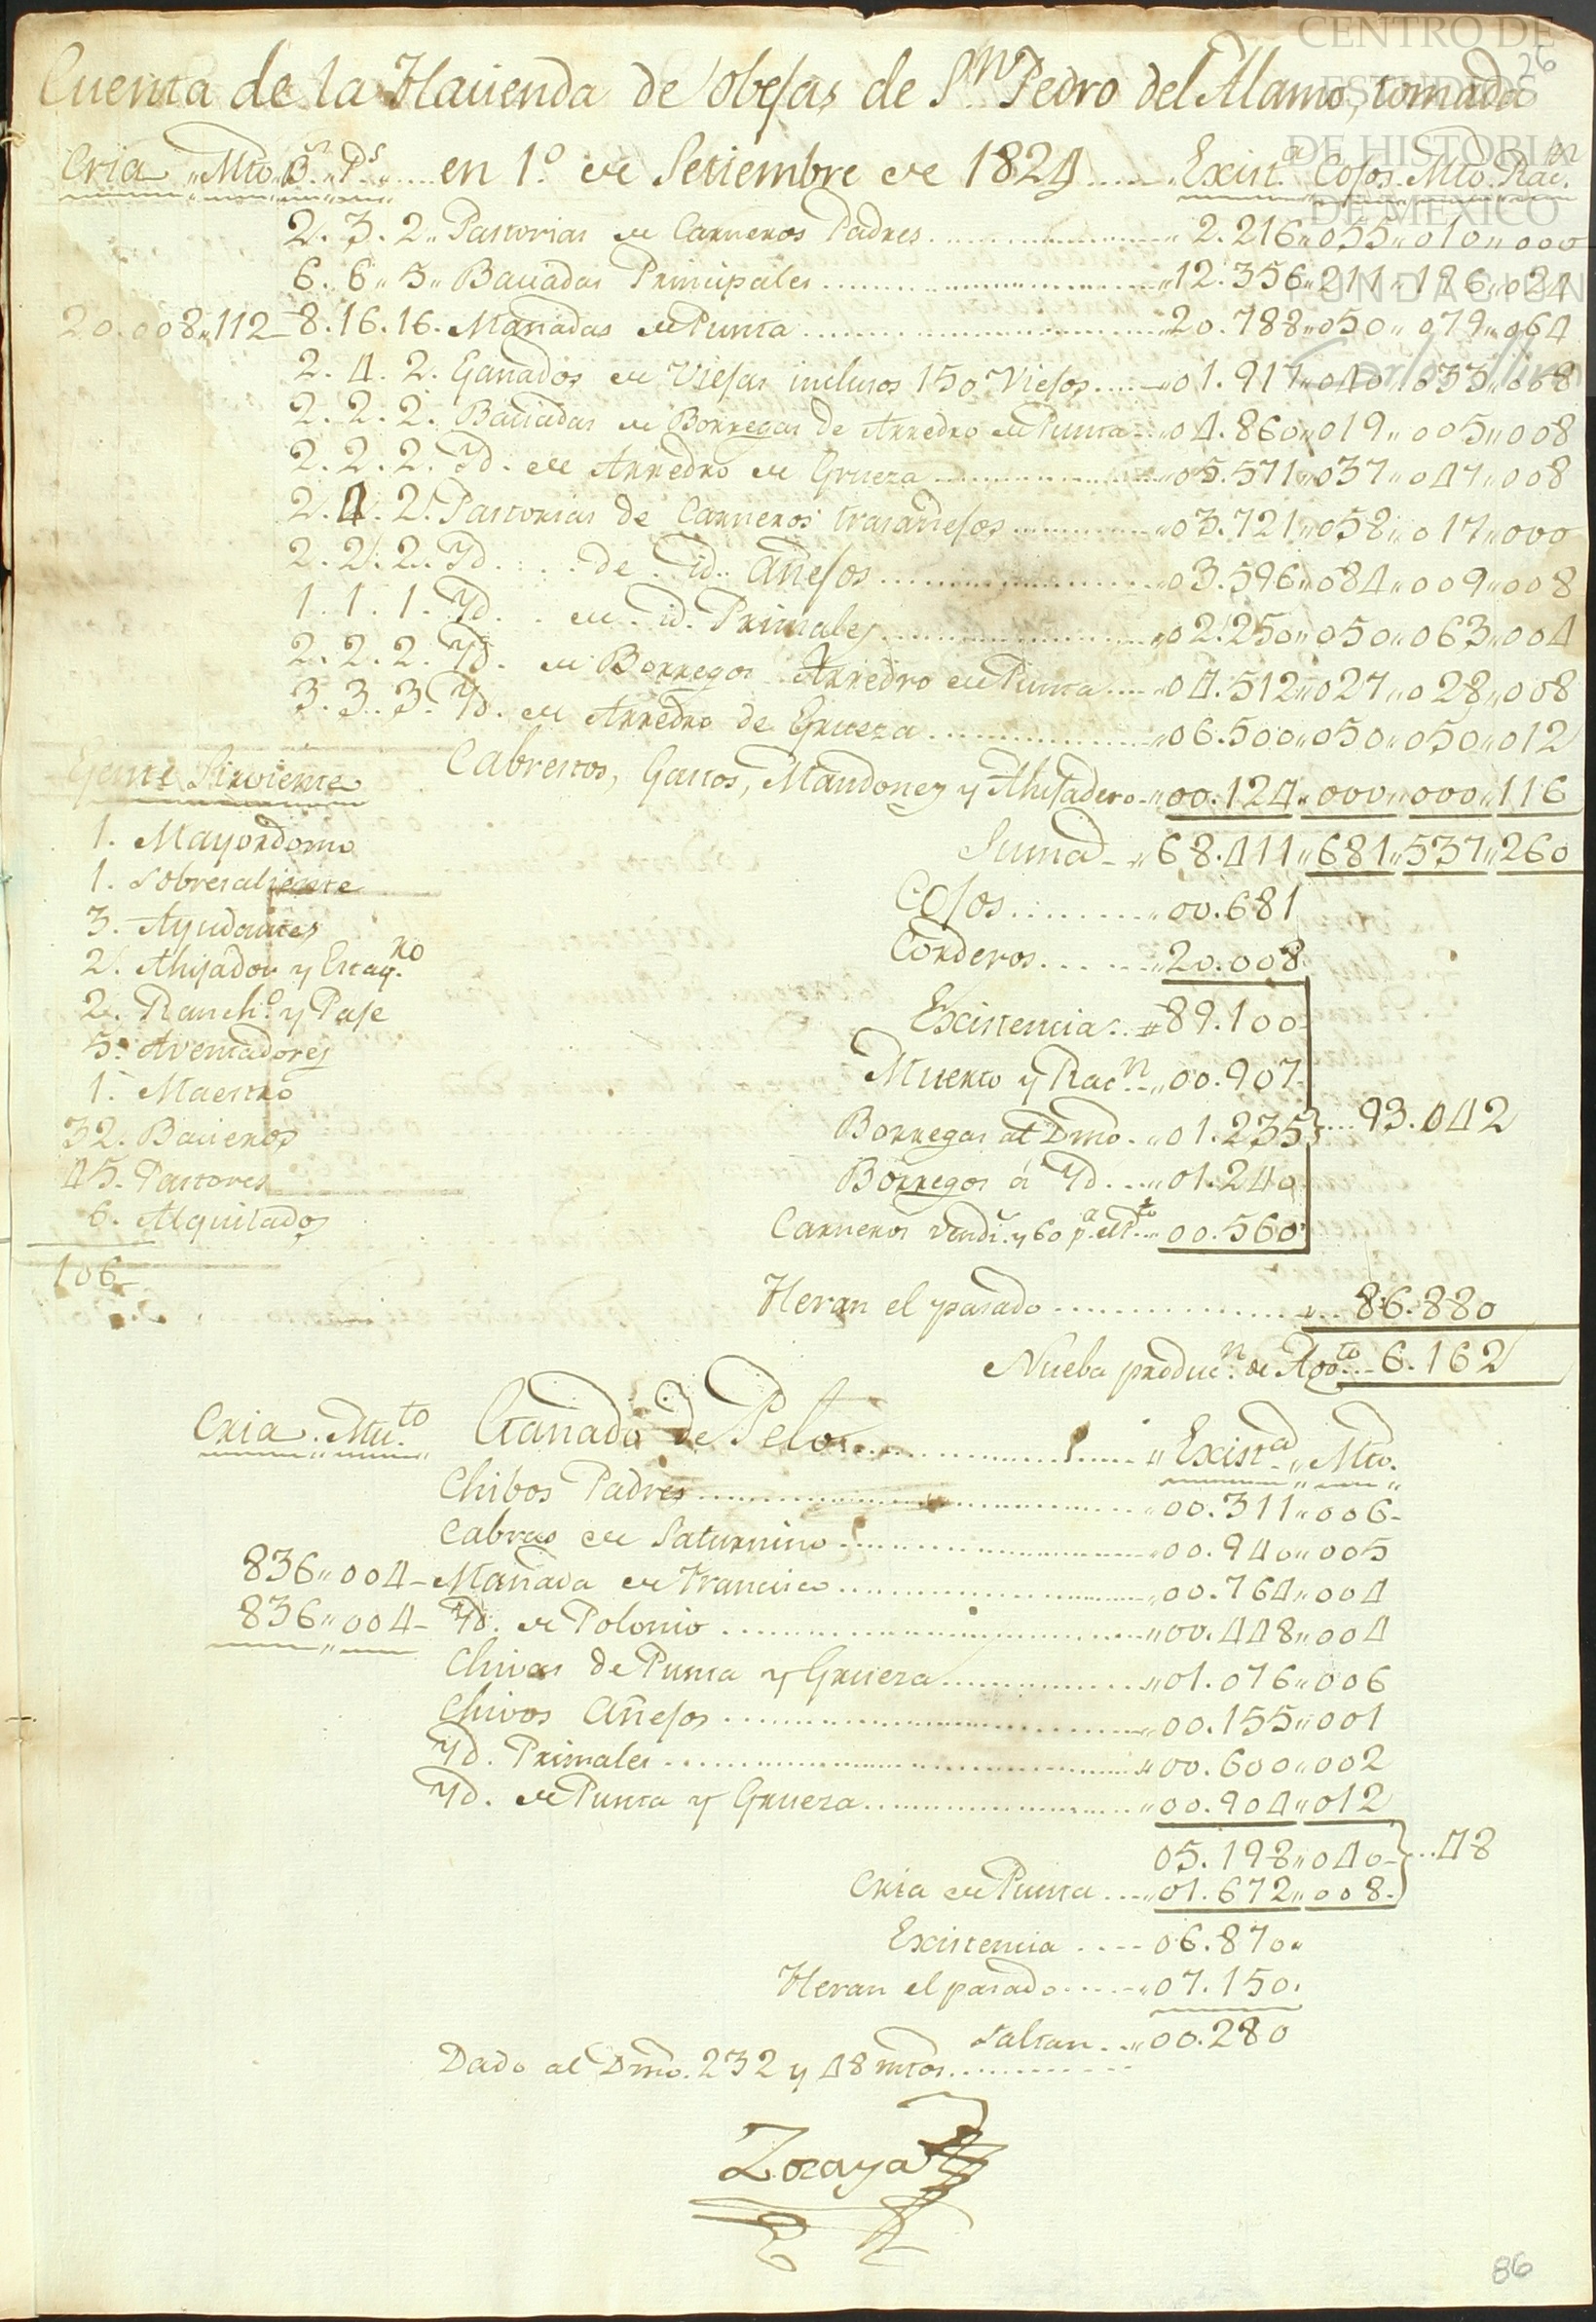 CENTRO DE
ESTUDIOS
DE HISTORIA
DE MEXICO
FUNDACION
26
Cuenta de la Hacienda de obejas de Sn. Pedro del Alamo, tomada
Cria " Mto. Bs. Ps. .... en 1.º de Setiembre de 1824 ..... Exista. Cojos. Mto. Racn.
2. 3. 2. Pastorias de Carneros Padres ..... 2.216 " 055 " 010 " 000
6. 6 " 5 " Baciadas Principales ..... 12.356 " 211 " 196 " 024
20.008 " 112 - 8. 16. 16. Manadas de Punta ..... 20.788 " 050 " 079 " 064
2. 4. 2. Ganados de Viejas inclusos 150 Viejos ..... 01.917 " 040 " 033 " 008
2. 2. 2. Baciadas de Borregas de Arredro de Punta ..... 04.860 " 019 " 005 " 008
2. 2. 2. Yd. de Arredro de Grueza ..... 05.571 " 037 " 047 " 008
2. 4. 2. Pastorias de Carneros trasañejos ..... 03.721 " 058 " 017 " 000
2. 2. 2. Yd. . . . de . id. Añejos ..... 03.596 " 084 " 009 " 008
1. 1. 1. Yd. . de . id. Primales ..... 02.250 " 050 " 063 " 004
2. 2. 2. Yd. de Borregos Arredro de Punta ..... 04.512 " 027 " 028 " 008
3. 3. 3. Yd. de Arredro de Grueza ..... 06.500 " 050 " 050 " 012
Cabrestos, Gastos, Mandones y Ahijadero " 00.124 " 000 " 000 " 116
Suma " 68.411 " 681 " 537 " 260
Cojos ..... 00.681
Corderos ..... 20.008
Existencia .. 89.100
Muerto y Racn. " 00.907
Borregas al Dmo. " 01.235 .... 93.042
Borregos á Yd. .... 01.240
Carneros vendi. y 60 pa. el " 00.560
Heran el pasado ..... 86.880
Nueba producn. de Agto. ... 6.162
Gente Sirviente
1. Mayordomo
1. Sobresaliente
3. Ayudantes
2. Ahijador y Escno.
2. Ranchº. y Paje
5. Aventadores
1. Maestro
32. Bacieros
45. Pastores
6. Alquilados
106
Cria . Muto. Ganado de Pelo ..... Exista. " Mto.
Chibos Padres ..... 00.311 " 006
Cabras de Saturnino ..... 00.940 " 005
836 " 004 - Manada de Francisco ..... 00.764 " 004
836 " 004 - Yd. de Polonio ..... 00.448 " 004
Chivas de Punta y Grueza ..... 01.076 " 006
Chivos Añejos ..... 00.155 " 001
Yd. Primales ..... 00.600 " 002
Yd. de Punta y Grueza ..... 00.904 " 012
05.198 " 040 ... 48
Cria de Punta .... 01.672 " 008
Existencia .... 06.870 "
Heran el pasado ..... 07.150.
Faltan .. 00.280
Dado al Dmo. 232 y 48 mtos. .....
Zozaya
86